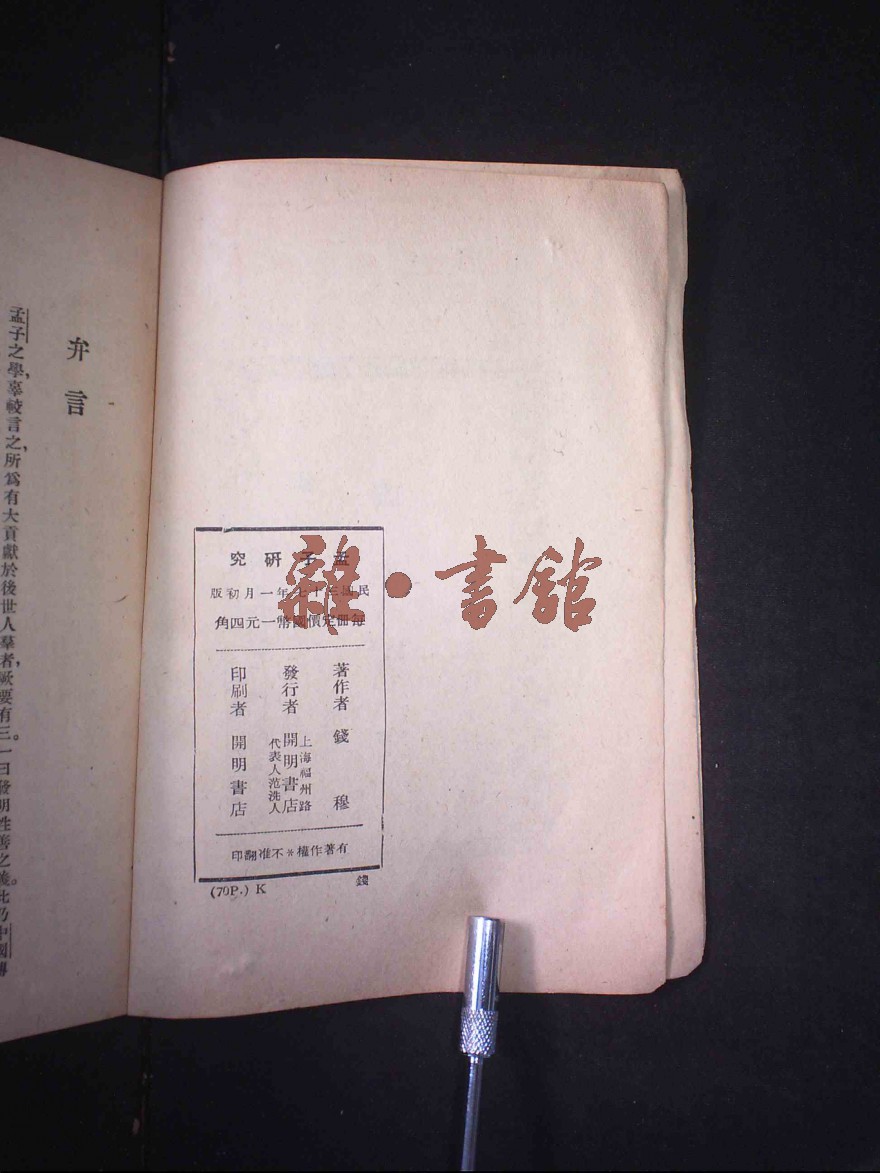 孟子研究
民國三十七年一月初版
每冊定價國幣一元四角
著作者 錢穆
發行者 上海福州路
開明書店
代表人范洗人
印刷者 開明書店
有著作權*不准翻印
(70P.) K
錢
弁言
孟子之學,辜較言之,所爲有大貢獻於後世人羣者,厥要有三。一曰發明性善之義。此乃中國傳
雜•書館